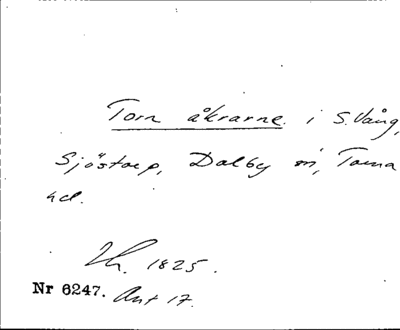 Torn åkrarne i S. Vång,
Sjöstorp, Dalby sn, Torna
hd.
1825.
Nr 6247. Ant 17.